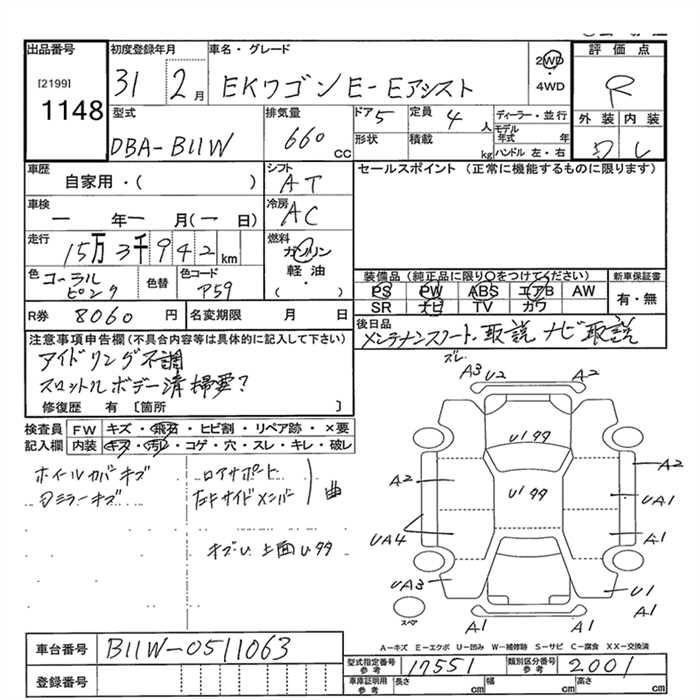 出品番号 初度登録年月 車名・グレード 評価点
[2199]
1148
31 2月 EKワゴン E-Eアシスト 2WD 4WD R
型式 排気量 ドア 定員 ディーラー・並行 外装 内装
DBA-B11W 660cc 5 4人 モデル年式 年
形状 積載 kg ハンドル 左・右
車歴 シフト セールスポイント(正常に機能するものに限ります)
自家用・( ) AT
車検 冷房
ー年ー月(ー日) AC
走行 燃料
15万3千942km ガソリン 軽油・( )
色 コーラルピンク 色替 色コード P59
装備品(純正品に限り○をつけてください) 新車保証書
PS PW ABS エアB AW 有・無
SR ナビ TV カワ
R券 8060円 名変期限 月 日
後日品 メンテナンスノート、取説 ナビ取説
注意事項申告欄(不具合内容等は具体的に記入して下さい)
アイドリング不調
スロットルボデー清掃要?
修復歴 有 〔箇所 〕
検査員記入欄 FW キズ・飛石・ヒビ割・リペア跡・×要
内装 キズ・汚れ・コゲ・穴・スレ・キレ・破レ
ホイールカバーキズ ロアサポート
左右サイドメンバー 曲
ズレ
A3 U2 A2
U199
A2 U199 A2
UA1
UA4 A1
UA3 U1
A1 A1
スペア
A-キズ E-エクボ U-凹み W-補修跡 S-サビ C-腐食 XX-交換済
車台番号 B11W-0511063
型式指定番号 参考 17551 類別区分番号 参考 2001
登録番号 車庫証明用 参考 長さ cm 幅 cm 高さ cm